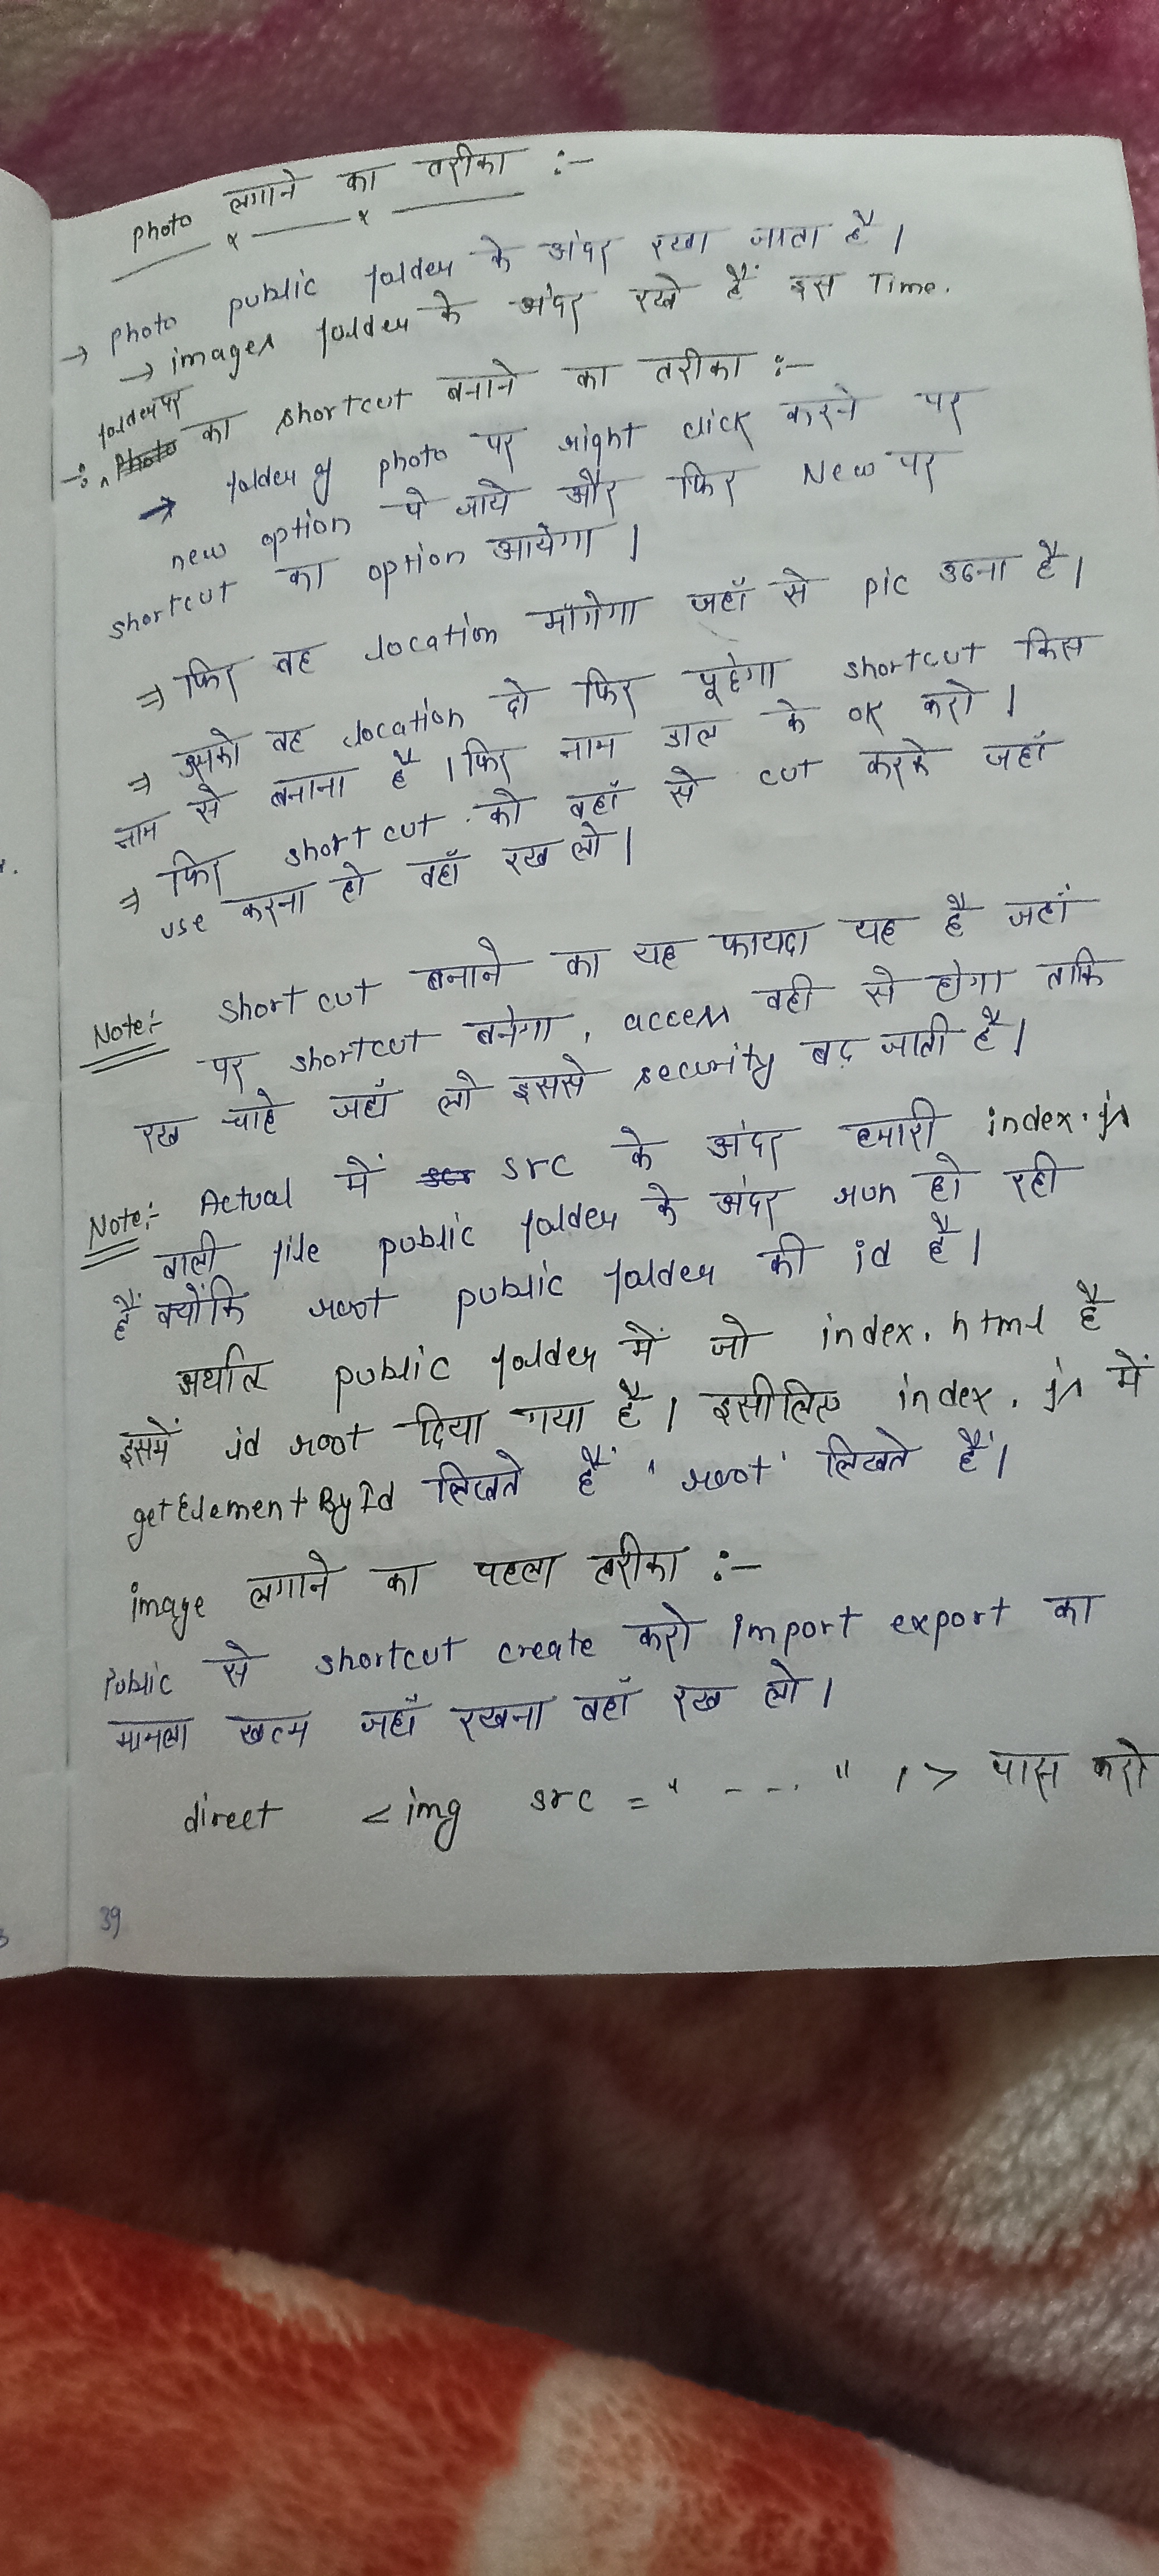 photo लगाने का तरीका :-
→ photo public folder के अंदर रखा जाता है।
→ images folder के अंदर रखे हैं इस Time.
folder पर
का shortcut बनाने का तरीका :-
→ folder of photo पर right click करने पर
new option पे जाये और फिर New पर
shortcut का option आयेगा।
⇒ फिर वह location माँगेगा जहाँ से pic उठना है।
⇒ उसको वह location दो फिर पूछेगा shortcut किस
नाम से बनाना है। फिर नाम डाल के OK करो।
⇒ फिर shortcut को वहाँ से cut करके जहाँ
use करना हो वहाँ रख लो।
Note:- shortcut बनाने का यह फायदा यह है जहाँ
पर shortcut बनेगा, access वही से होगा ताकि
रख चाहे जहाँ लो इससे security बढ़ जाती है।
Note:- Actual में src के अंदर हमारी index.js
वाली file public folder के अंदर run हो रही
हैं क्योंकि root public folder की id है।
अर्थात public folder में जो index.html है
इसमें id root दिया गया है। इसीलिए index.js में
getElementById लिखते हैं 'root' लिखते हैं।
image लगाने का पहला तरीका :-
Public से shortcut create करो import export का
मामला खत्म जहाँ रखना वहाँ रख लो।
direct <img src = " - - - " /> पास करो
39